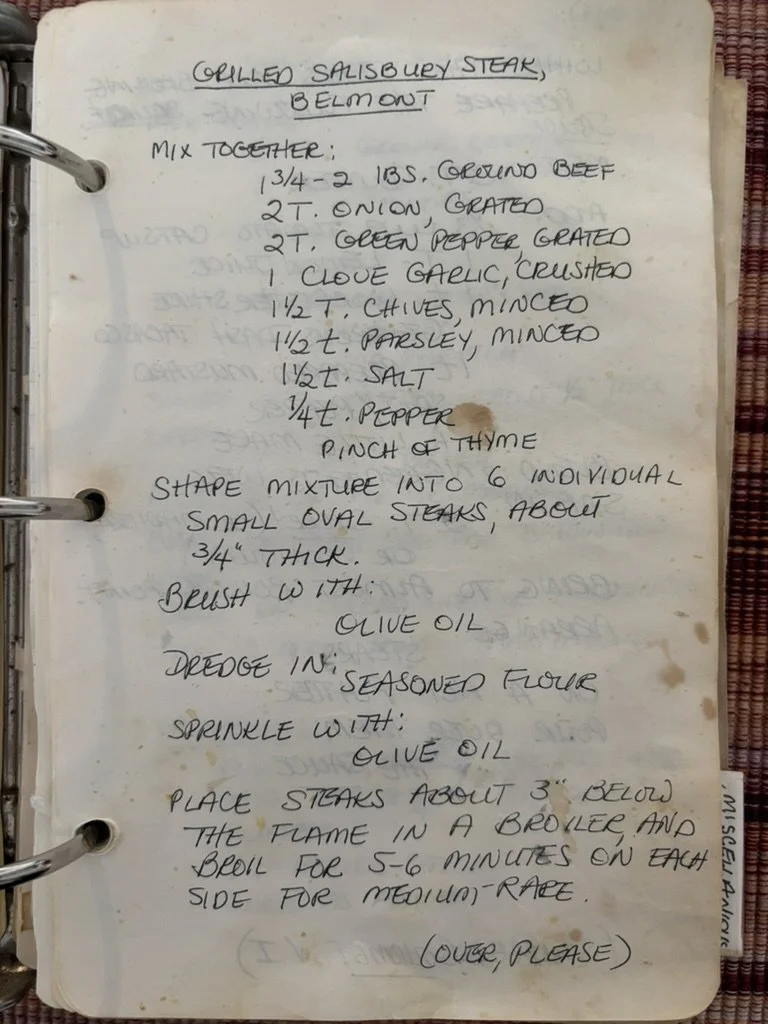 GRILLED SALISBURY STEAK,
BELMONT
MIX TOGETHER:
1 3/4 - 2 lBS. GROUND BEEF
2 T. ONION, GRATED
2 T. GREEN PEPPER, GRATED
1 CLOVE GARLIC, CRUSHED
1 1/2 T. CHIVES, MINCED
1 1/2 t. PARSLEY, MINCED
1 1/2 t. SALT
1/4 t. PEPPER
PINCH OF THYME
SHAPE MIXTURE INTO 6 INDIVIDUAL
SMALL OVAL STEAKS, ABOUT
3/4" THICK.
BRUSH WITH:
OLIVE OIL
DREDGE IN:
SEASONED FLOUR
SPRINKLE WITH:
OLIVE OIL
PLACE STEAKS ABOUT 3" BELOW
THE FLAME IN A BROILER, AND
BROIL FOR 5-6 MINUTES ON EACH
SIDE FOR MEDIUM-RARE.
(OVER, PLEASE)